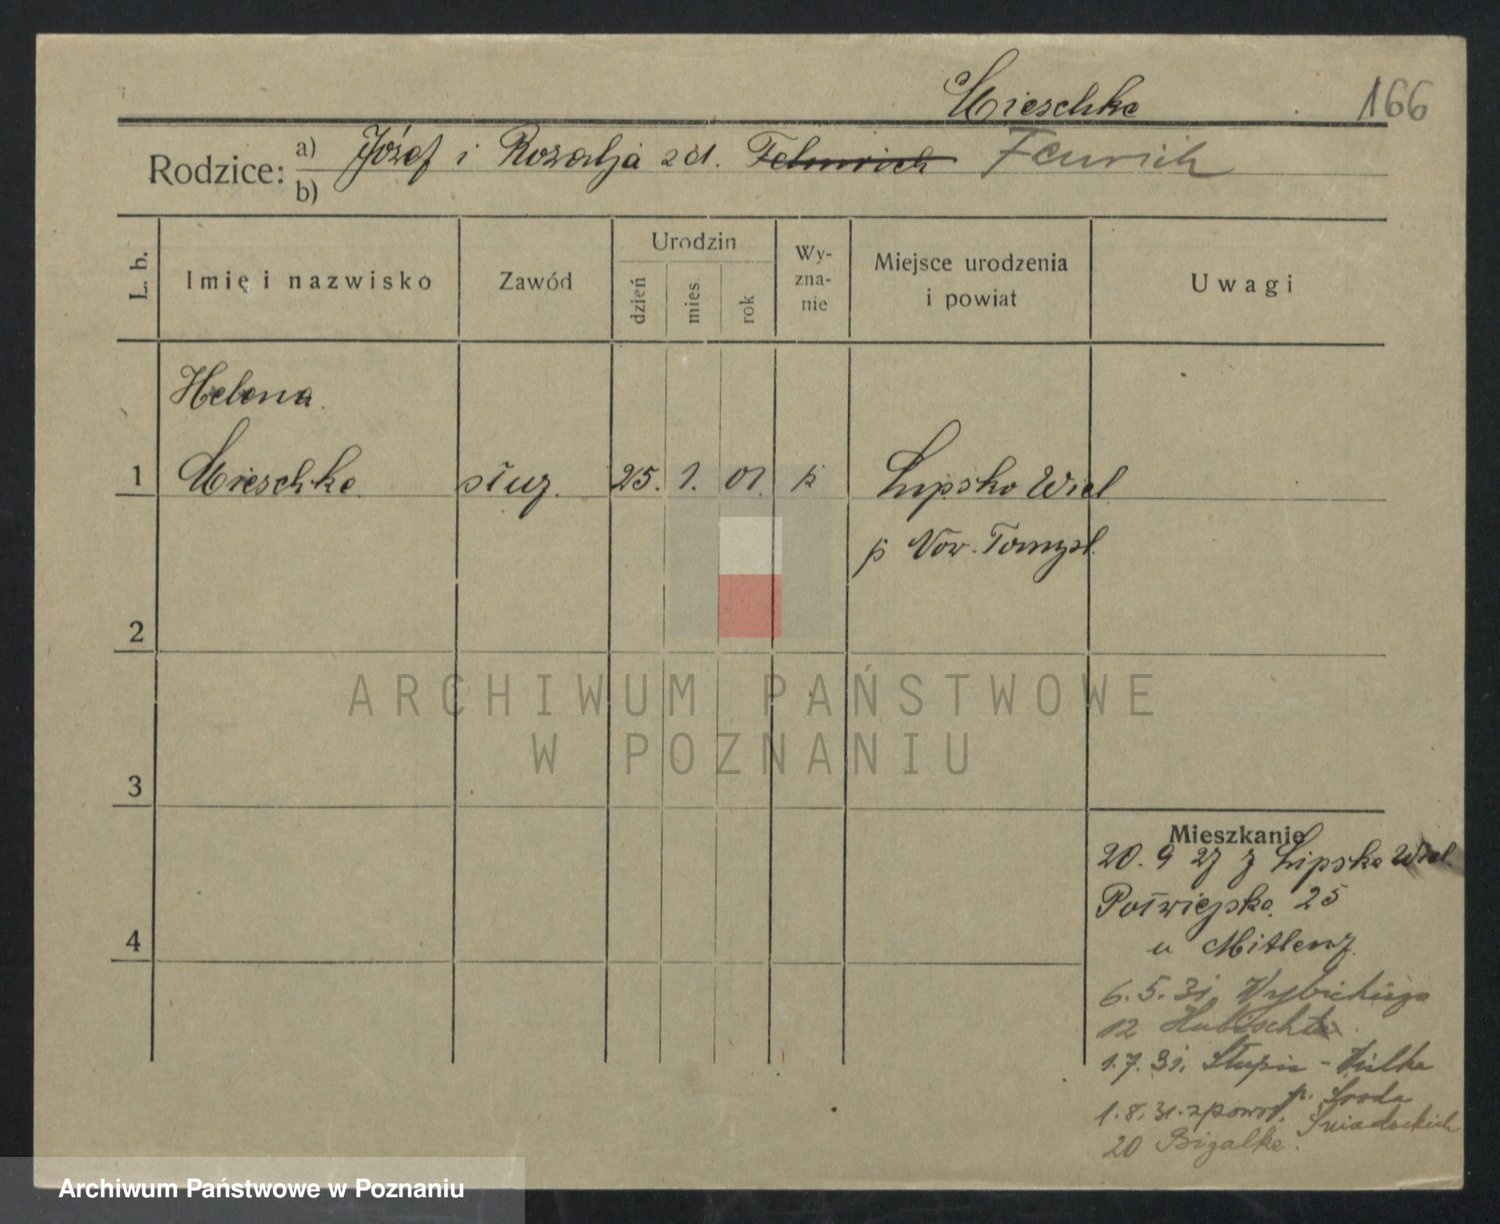 Mieschke 166
Rodzice: a) Józef i Rozalja zd. Fehnrich Feurich
b)
L. b. Imię i nazwisko Zawód Urodzin dzień mies. rok Wy-zna-nie Miejsce urodzenia i powiat Uwagi
Helena
1 Mieschke służ. 25. 1. 01. k Lipsko Wiel
p Now. Tomyśl.
2
ARCHIWUM PAŃSTWOWE
W POZNANIU
3
Mieszkanie
20. 9 27 z Lipska Wiel.
Półwiejska 25
4
u
6. 5. 31. Wybickiego
12
1. 7. 31. Słupia - Wielka
p. Środa
1. 8. 31. z powr. Śniadeckich
20 Bigalke.
Archiwum Państwowe w Poznaniu